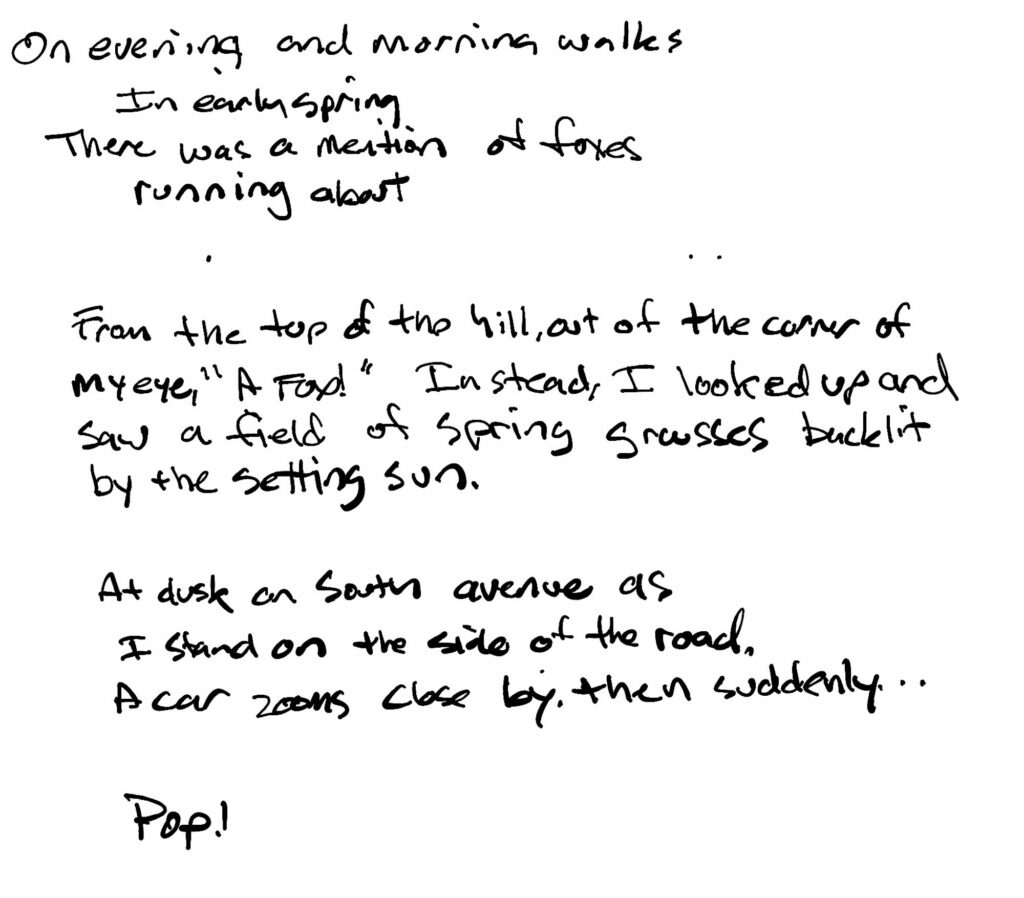 On evening and morning walks
In early spring
There was a mention of foxes
running about
. . .
From the top of the hill, out of the corner of
my eye, "A Fox!" Instead, I looked up and
saw a field of spring grasses backlit
by the setting sun.
At dusk on South avenue as
I stand on the side of the road,
A car zooms close by, then suddenly...
Pop!